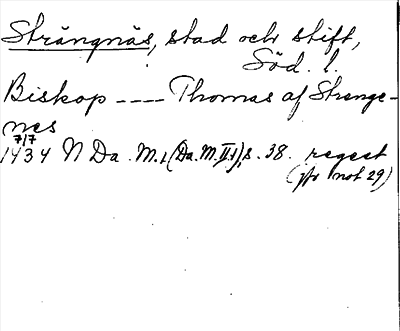 Strängnäs, stad och stift,
Söd. l.
Biskop ---- Thomas af Strenge-
nes
7/7
1434 N Da. M. 1 (Da. M. II. 1), s. 38. regest
(jfr not 29)